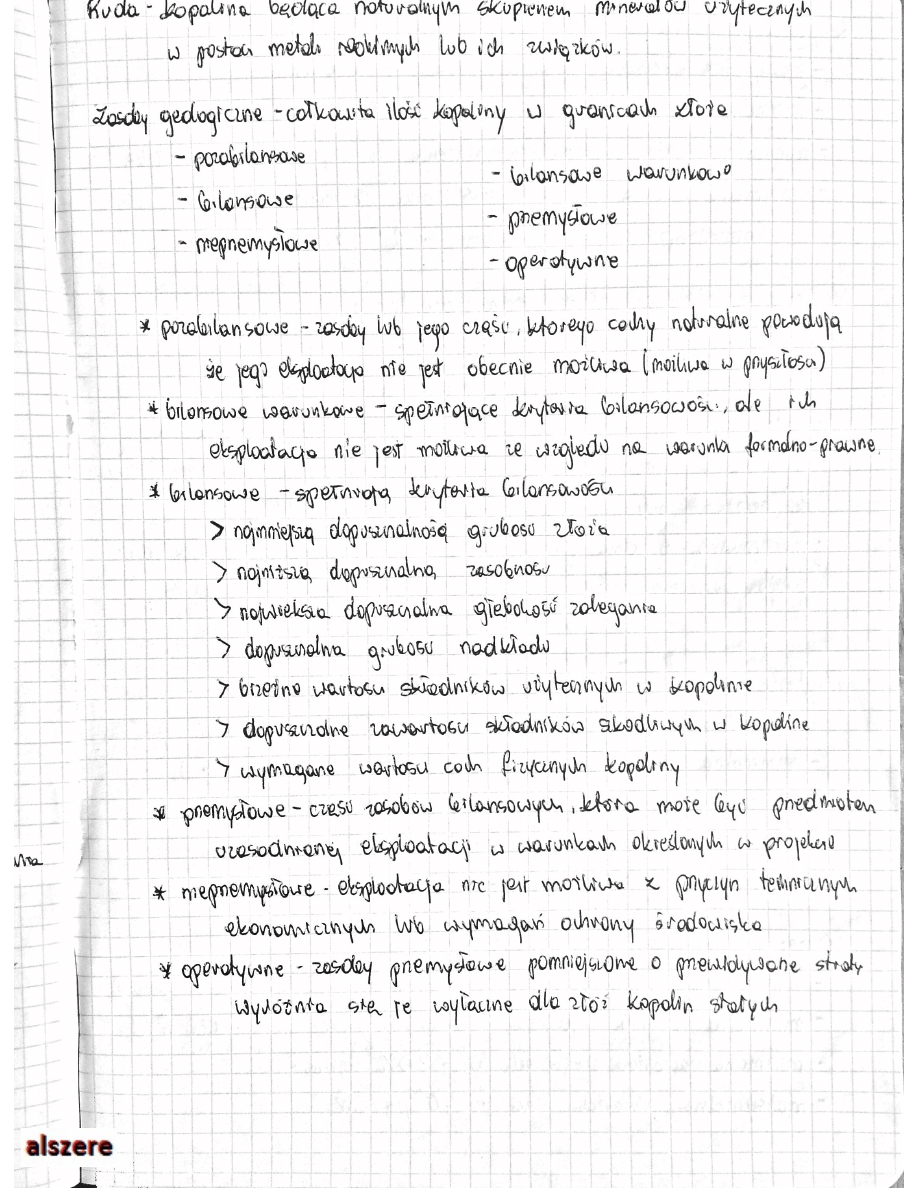 Ruda - kopalina będąca naturalnym skupieniem minerałów użytecznych
w postaci metali rodzimych lub ich związków.
Zasoby geologiczne - całkowita ilość kopaliny w granicach złoża
- pozabilansowe
- bilansowe warunkowo
- bilansowe
- przemysłowe
- nieprzemysłowe
- operatywne
* pozabilansowe - zasoby lub jego część, którego cechy naturalne powodują
że jego eksploatacja nie jest obecnie możliwa (możliwa w przyszłości)
* bilansowe warunkowe - spełniające kryteria bilansowości, ale ich
eksploatacja nie jest możliwa ze względu na warunki formalno-prawne.
* bilansowe - spełniają kryteria bilansowości
> najmniejszą dopuszczalnością grubości złoża
> najniższą dopuszczalną zasobności
> największa dopuszczalna głębokość zalegania
> dopuszczalna grubości nadkładu
> brzeżne wartości składników użytecznych w kopalinie
> dopuszczalne zawartości składników szkodliwych w kopalinie
> wymagane wartości cech fizycznych kopaliny
* przemysłowe - części zasobów bilansowych, która może być przedmiotem
uzasadnionej eksploatacji w warunkach określonych w projekcie
* nieprzemysłowe - eksploatacja nie jest możliwa z przyczyn technicznych
ekonomicznych lub wymagań ochrony środowiska
* operatywne - zasoby przemysłowe pomniejszone o przewidywane straty
wyróżnia się je wyłącznie dla złóż kopalin stałych
alszere